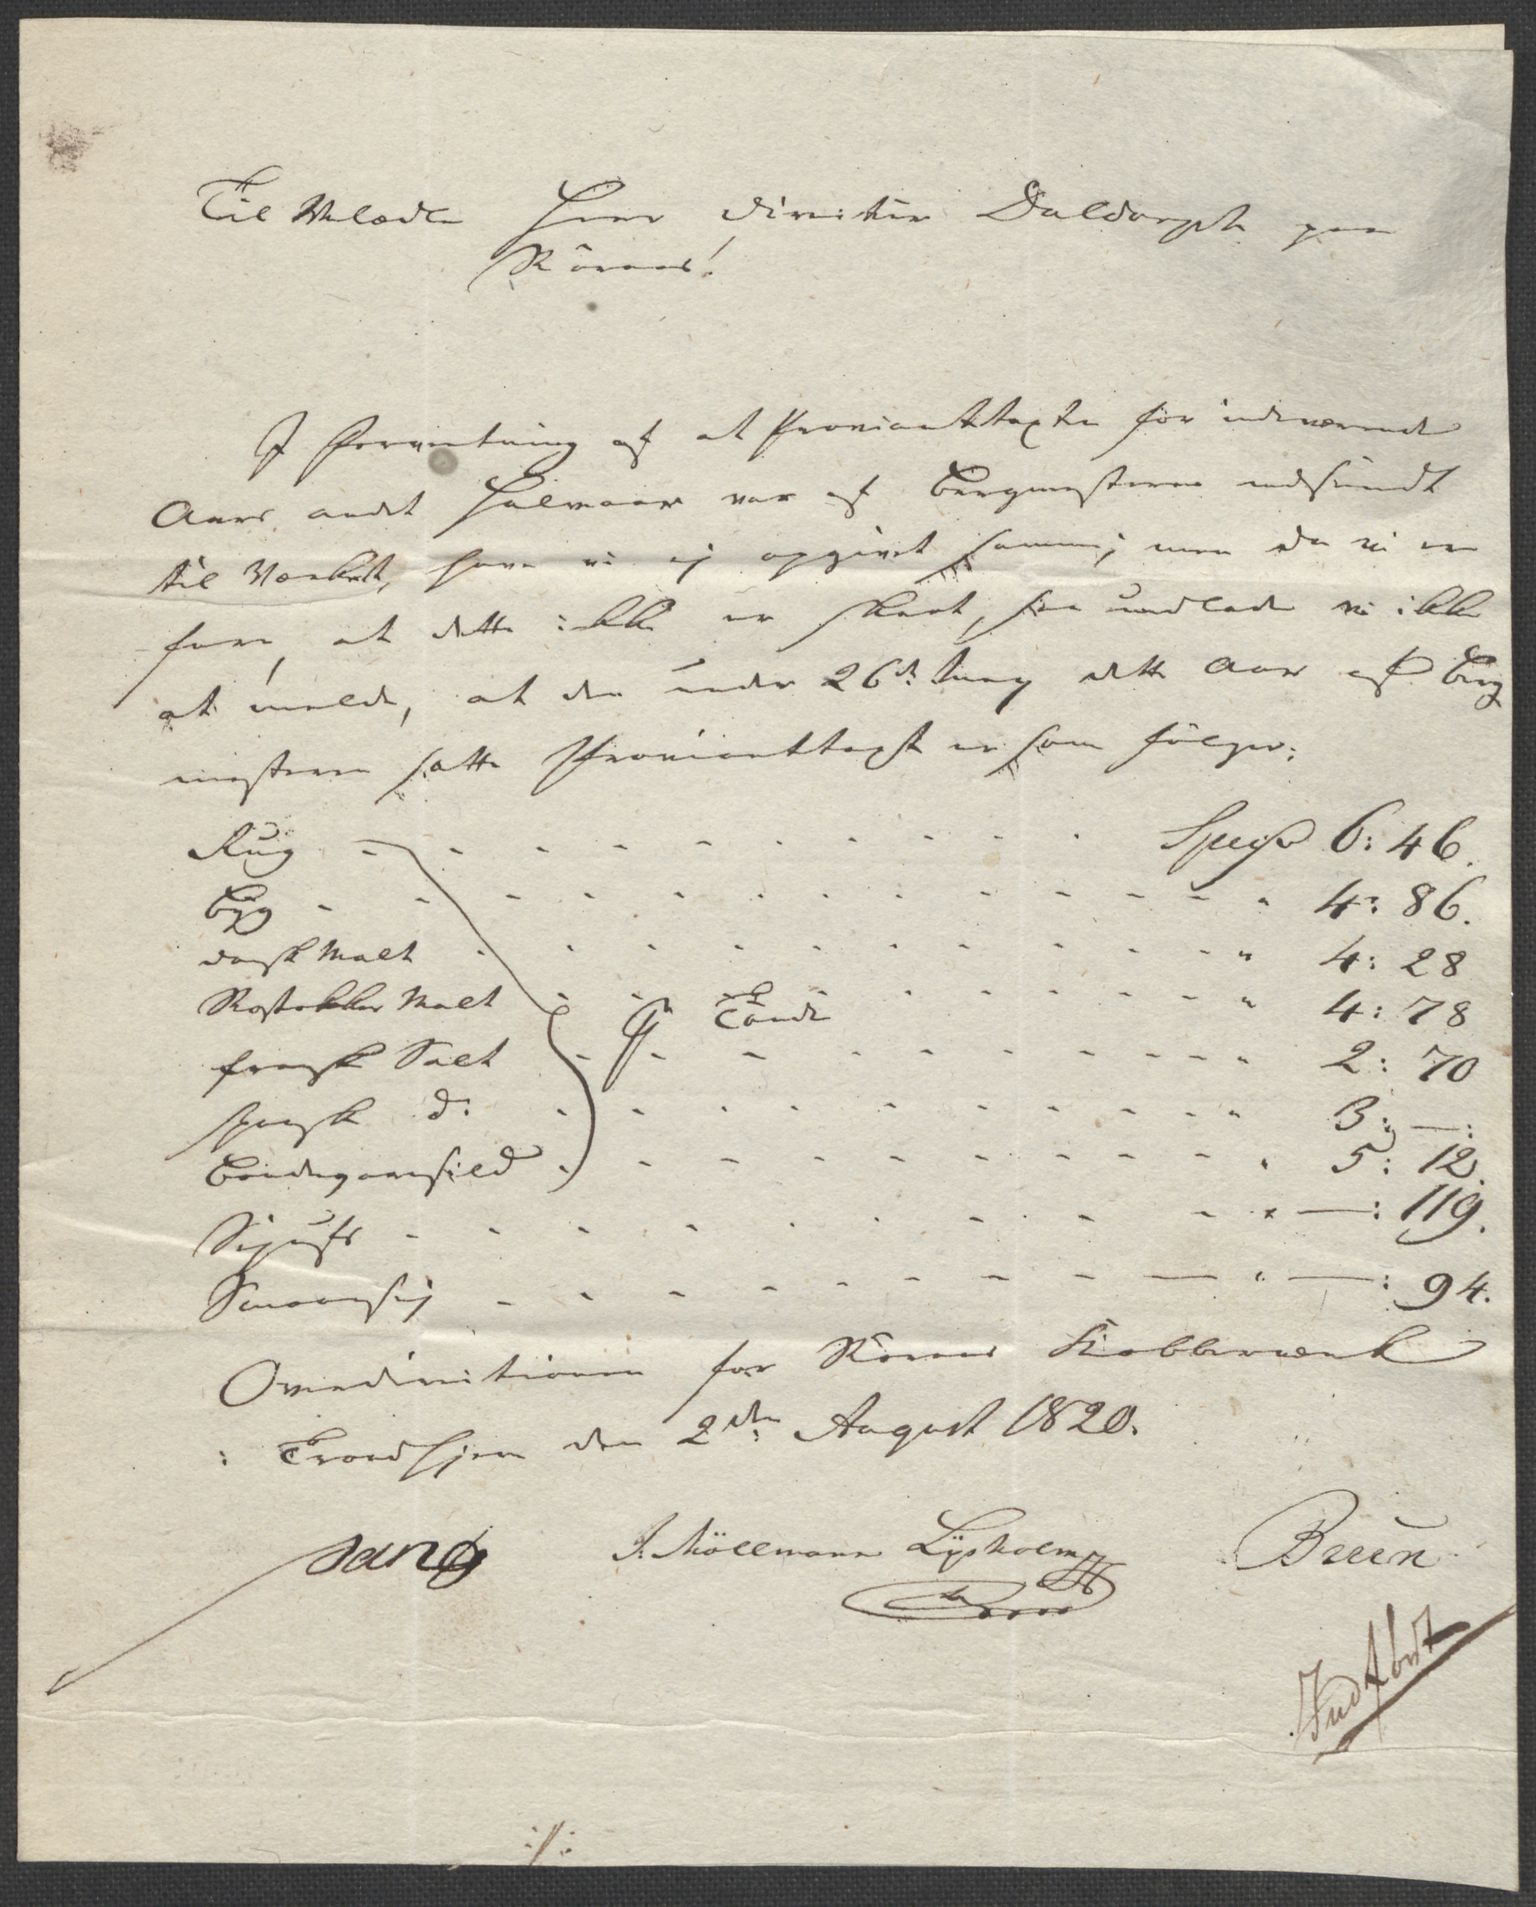 Til Velædle Herr Directeur Daldorph paa
Röraas!
I Forventning af at Provianttaxten for indeværende
Aars andet Halvaar var af Bergmesteren udsendt
til Værket, have vi ej opgivet samme; men da vi er
fare, at dette ikke er skeet, saa undlade vi ikke
at melde, at den under 26de Juny dette Aar af Berg
mesteren satte Provianttaxt er som følger:
Rug - - - - - - - - Specis 6: 46.
Byg - - - - - - - - " 4: 86.
dansk Malt - - - - - - - " 4: 28
Rostokker Malt - - pr Tönde - - - - " 4: 78
fransk Salt - - - - - - - - " 2: 70
spansk do - - - - - - - - " 3: —:
Sild - - - - - - - - " 5: 12.
- - - - - - - - " —: 119.
- - - - - - - - " —: 94.
Overdirectionen for Röraas Kobberværk
: Trondhjem den 2den August 1820.
Lang J. Möllmann Lysholm Bruun
Ind f brt
:/: